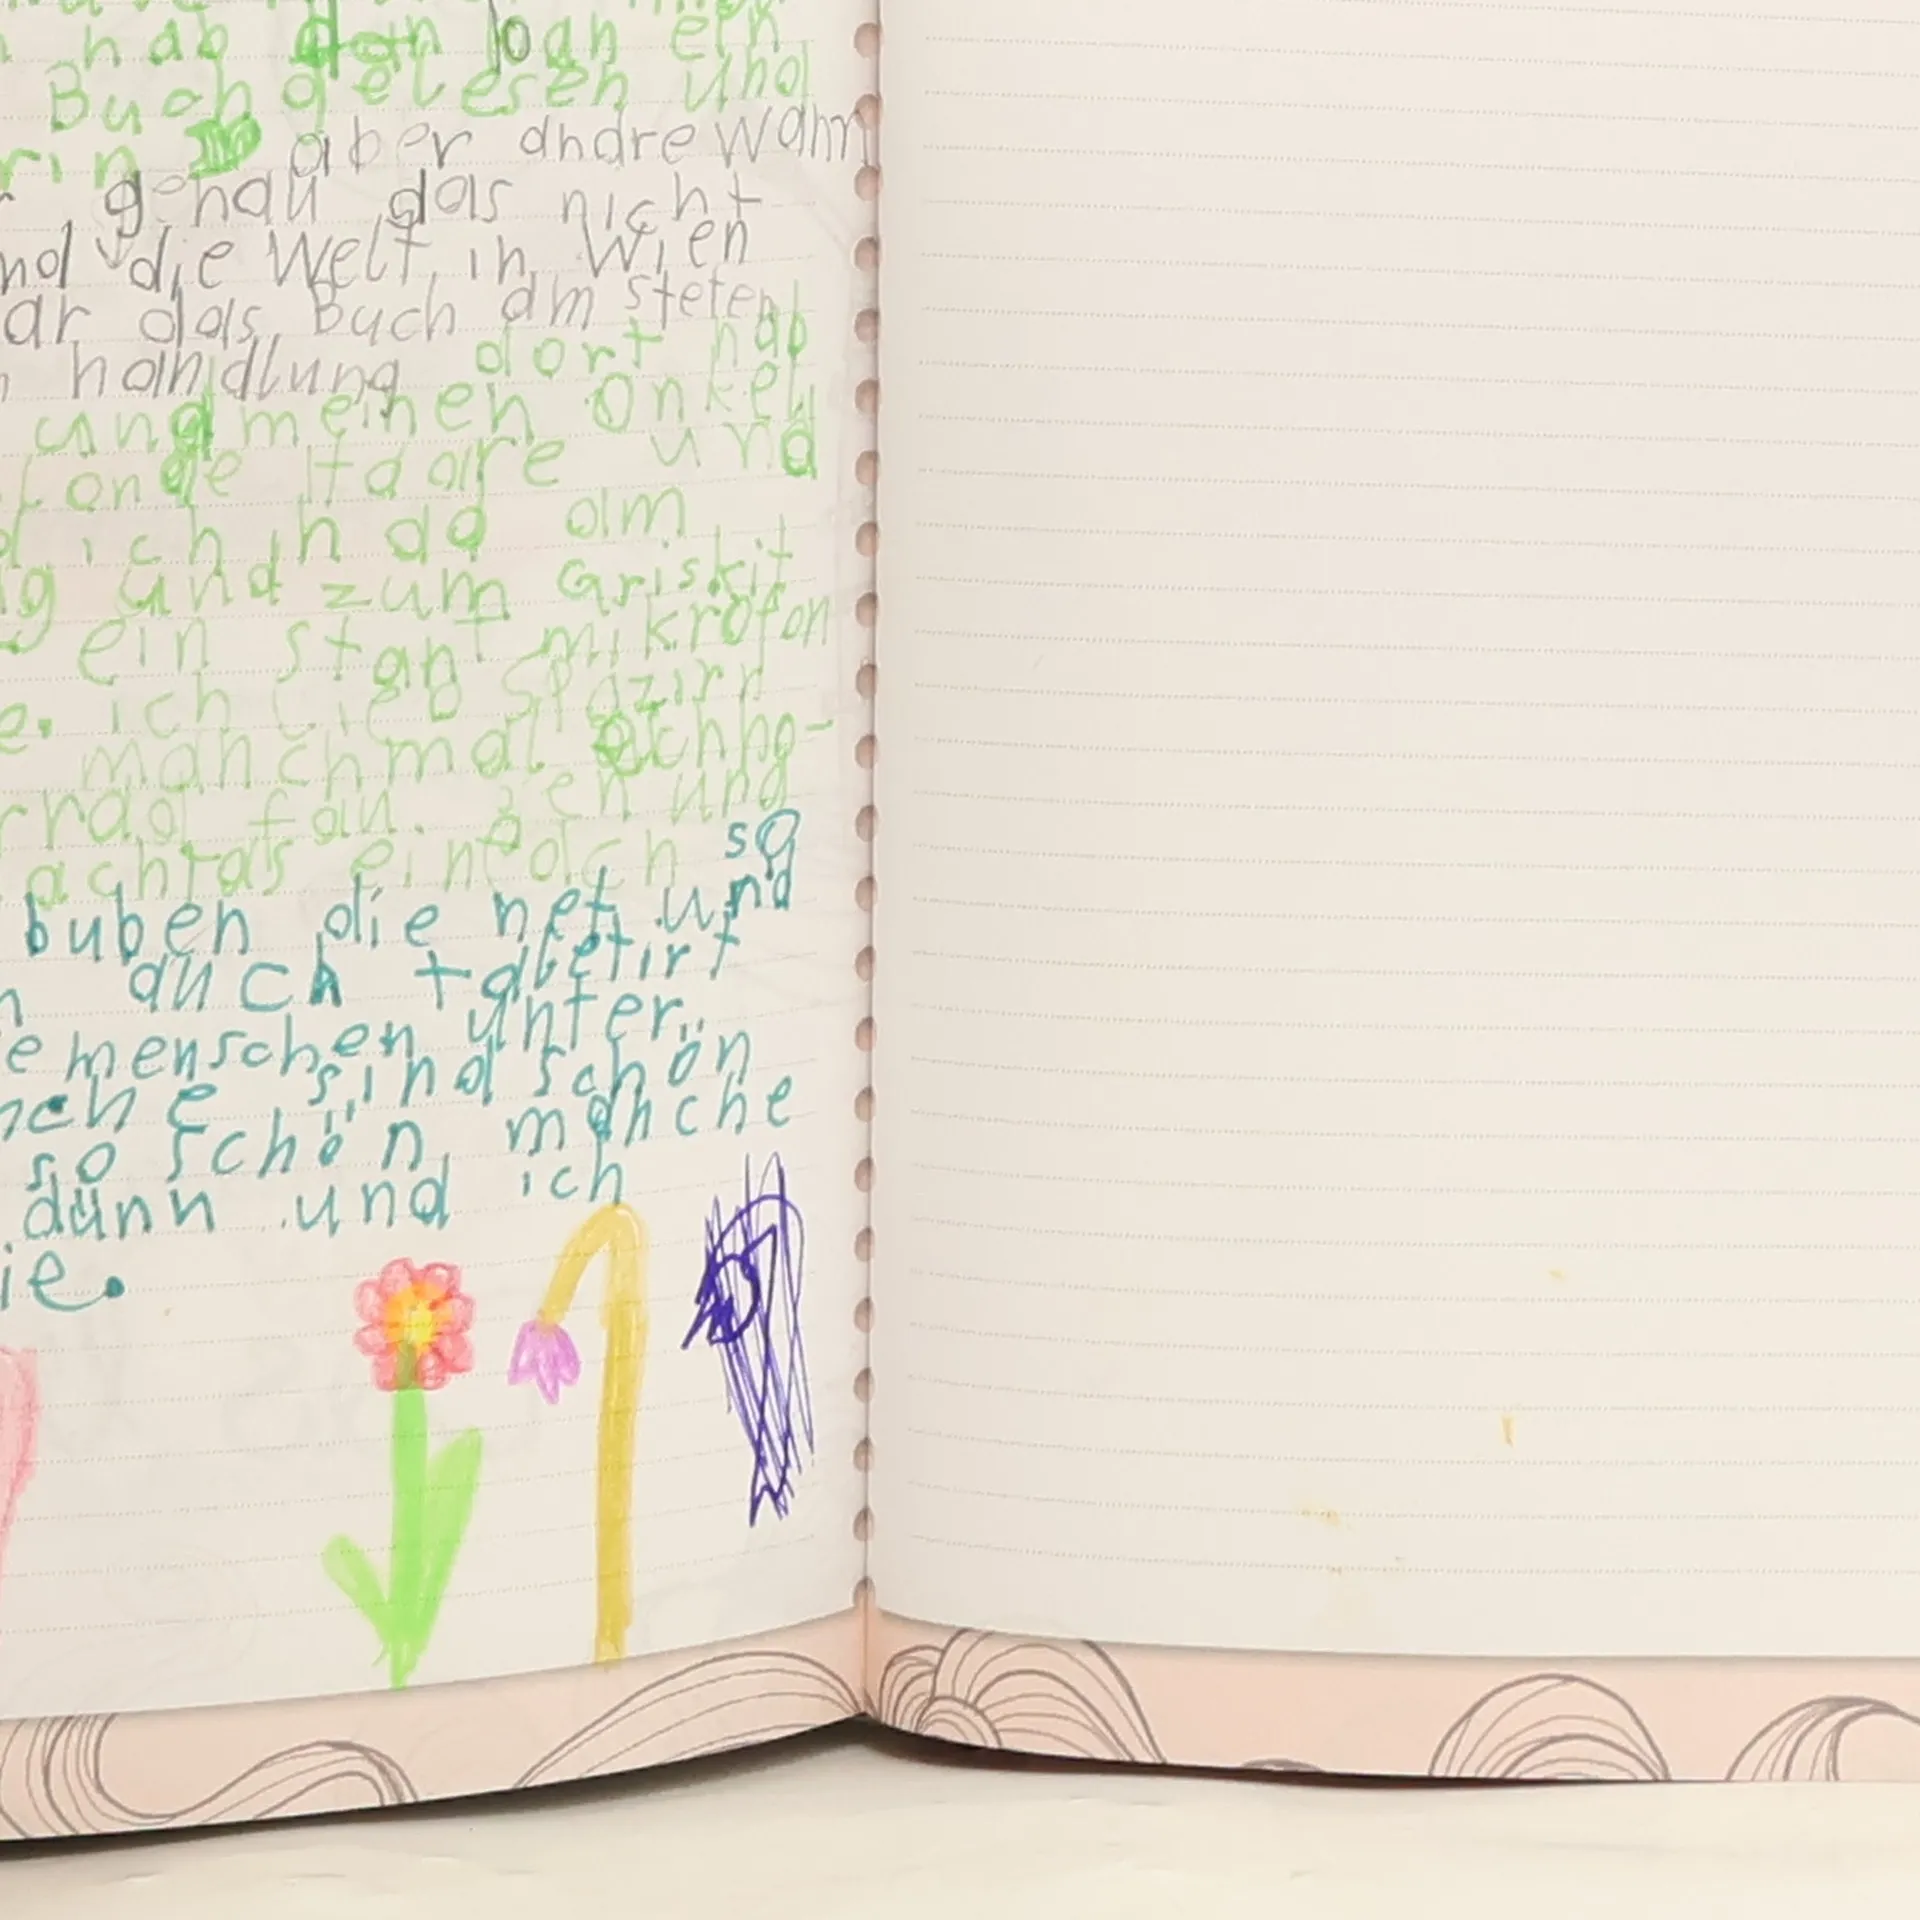 hab dan
Buch gelesen und
rin aber andre wann
genau das nicht
nd die Welt in Wien
ar das Buch am steten
handlung dort hab
und meinen Onkel
lange Haare und
ich in da am
g und zum Griskit
ein stant mikrofon
e. ich lieb spazirn
manchmal
rrad fan. zen und
achtas einfach so
buben die net und
n auch talletirt
e menschen unter
nche sind schön
so schön manche
dünn und ich
ie.